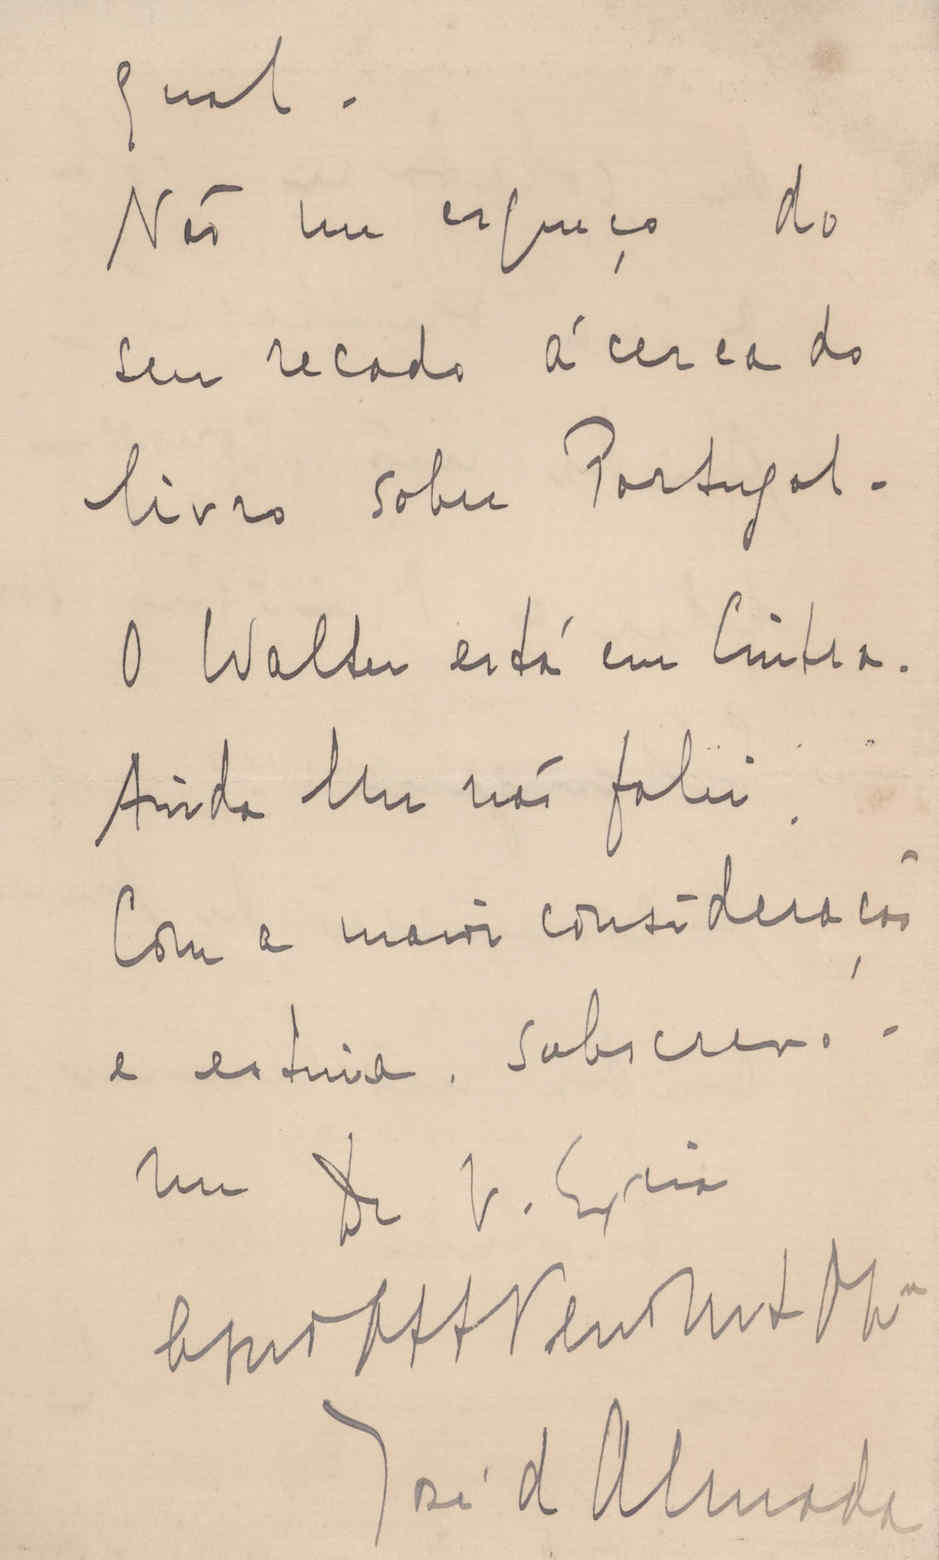 qual -
Não me esqueço do
seu recado ácerca do
livro sobre Portugal -
O Walter está em Cintra.
Ainda lhe não falei.
Com a maior consideração
e estima, subscrevo-
me De V. Exia
José d'Almada